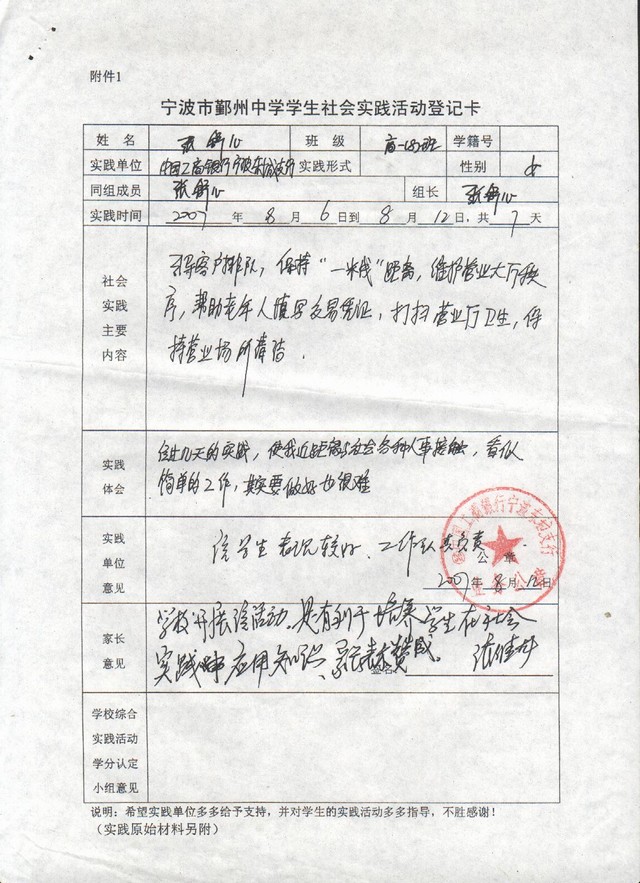 附件1
宁波市鄞州中学学生社会实践活动登记卡
姓 名 张 心 班 级 高一(8)班 学籍号
实践单位 中国工商银行宁波东 支行 实践形式 性别 女
同组成员 张 心 组长 张 心
实践时间 2007 年 8 月 6 日到 8 月 12 日,共 7 天
社会
实践
主要
内容
引导客户排队,保持"一米线"距离,维护营业大厅秩
序,帮助老年人填写交易凭证,打扫营业厅卫生,保
持营业场所清洁.
实践
体会
的实践,使我近距离与社会各种人事接触,看似
简单的工作,其实要做好也很难
实践
单位
意见
该学生表现较好、工作认真负责
公 章
2007 年 8 月 12 日
家长
意见
学校开展该活动,是有利于培养学生在社会
实践中应用知识、 表示赞成。
签名: 张
学校综合
实践活动
学分认定
小组意见
说明:希望实践单位多多给予支持,并对学生的实践活动多多指导,不胜感谢!
(实践原始材料另附)